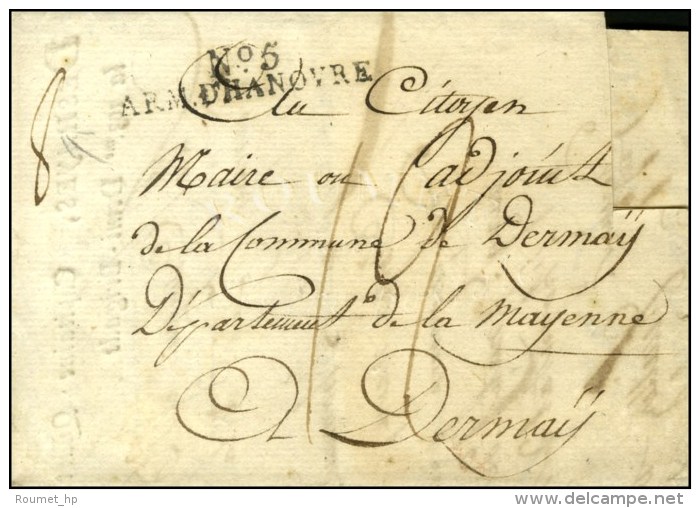 No 5
ARM. D'HANOVRE
8
Au Citoyen
Maire ou adjoint
de la Commune de Dermaÿ
Département de la Mayenne
A Dermaÿ
Roumet_hp
delcampe.net